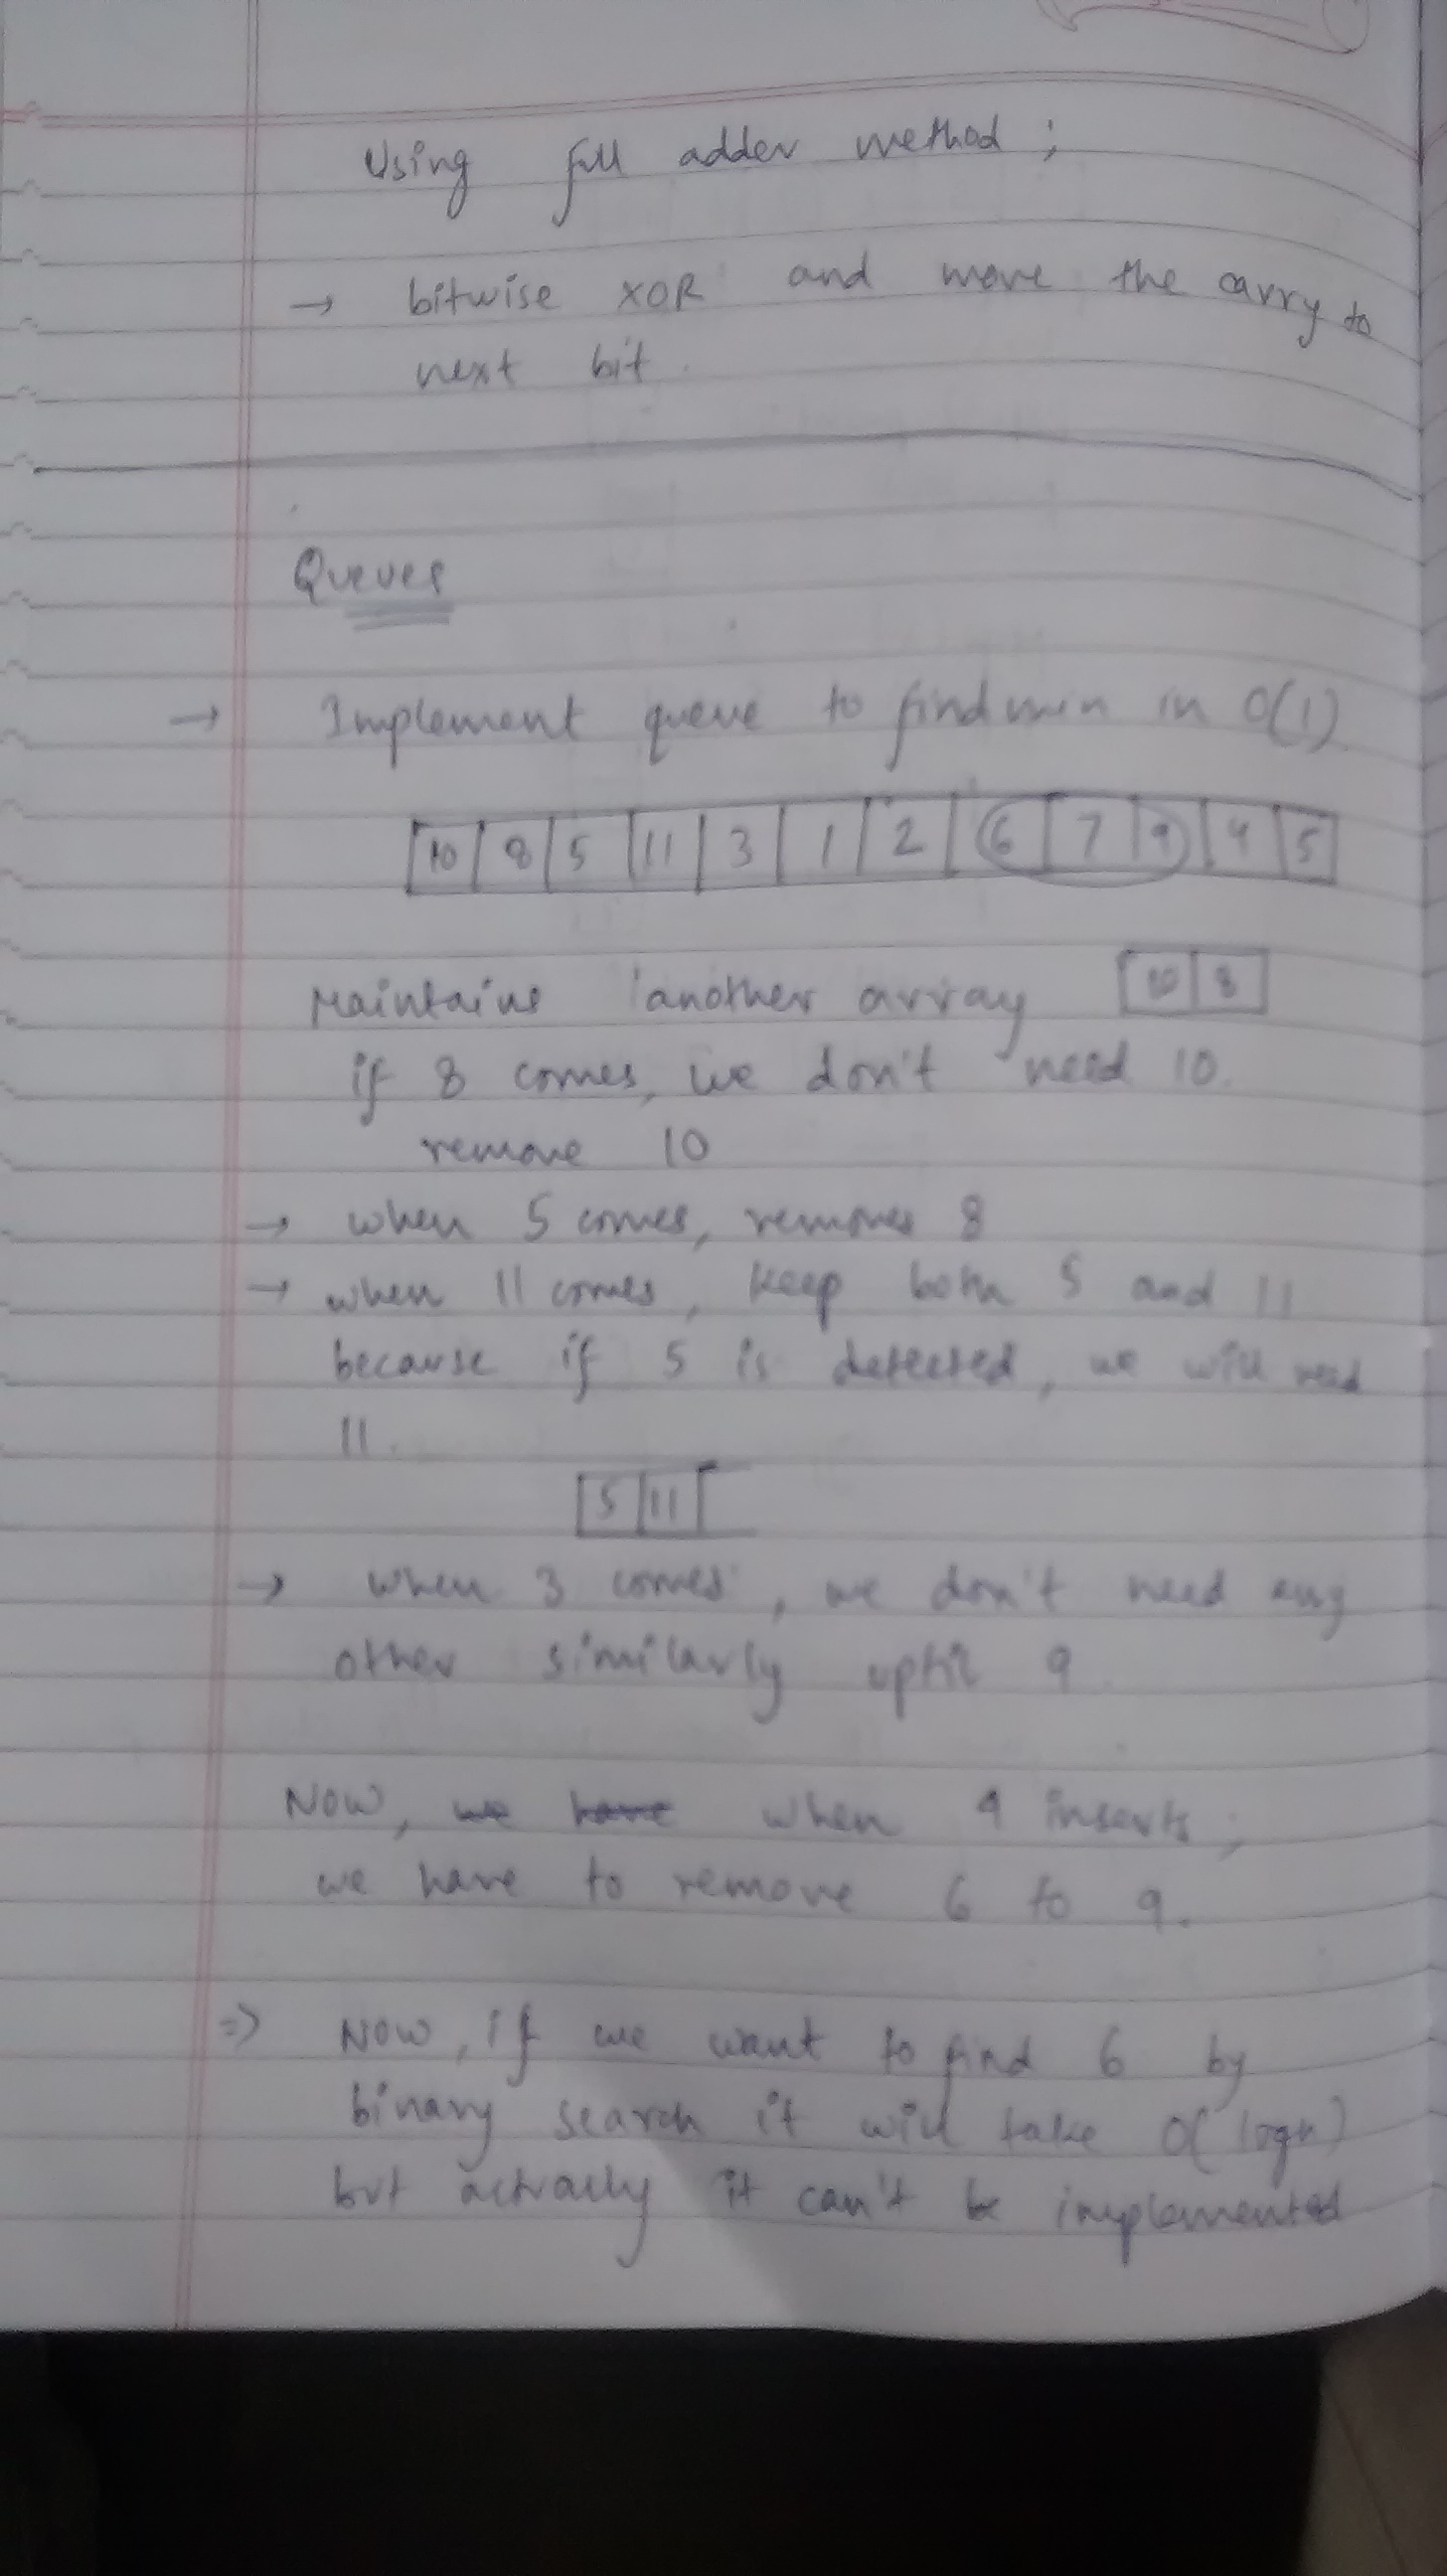 Using full adder method ;
→ bitwise XOR and move the carry to
next bit.
Queues
→ Implement queue to find min in O(1)
10 8 5 11 3 1 2 6 7 9 4 5
Maintains another array 10 8
if 8 comes, we don't need 10.
remove 10
→ when 5 comes, removes 8
→ when 11 comes, keep both 5 and 11
because if 5 is detected, we will need
11.
5 11
→ when 3 comes, we don't need any
other similarly uptil 9
Now, we have when 4 inserts;
we have to remove 6 to 9.
=> Now, if we want to find 6 by
binary search it will take O(logn)
but actually it can't be implemented